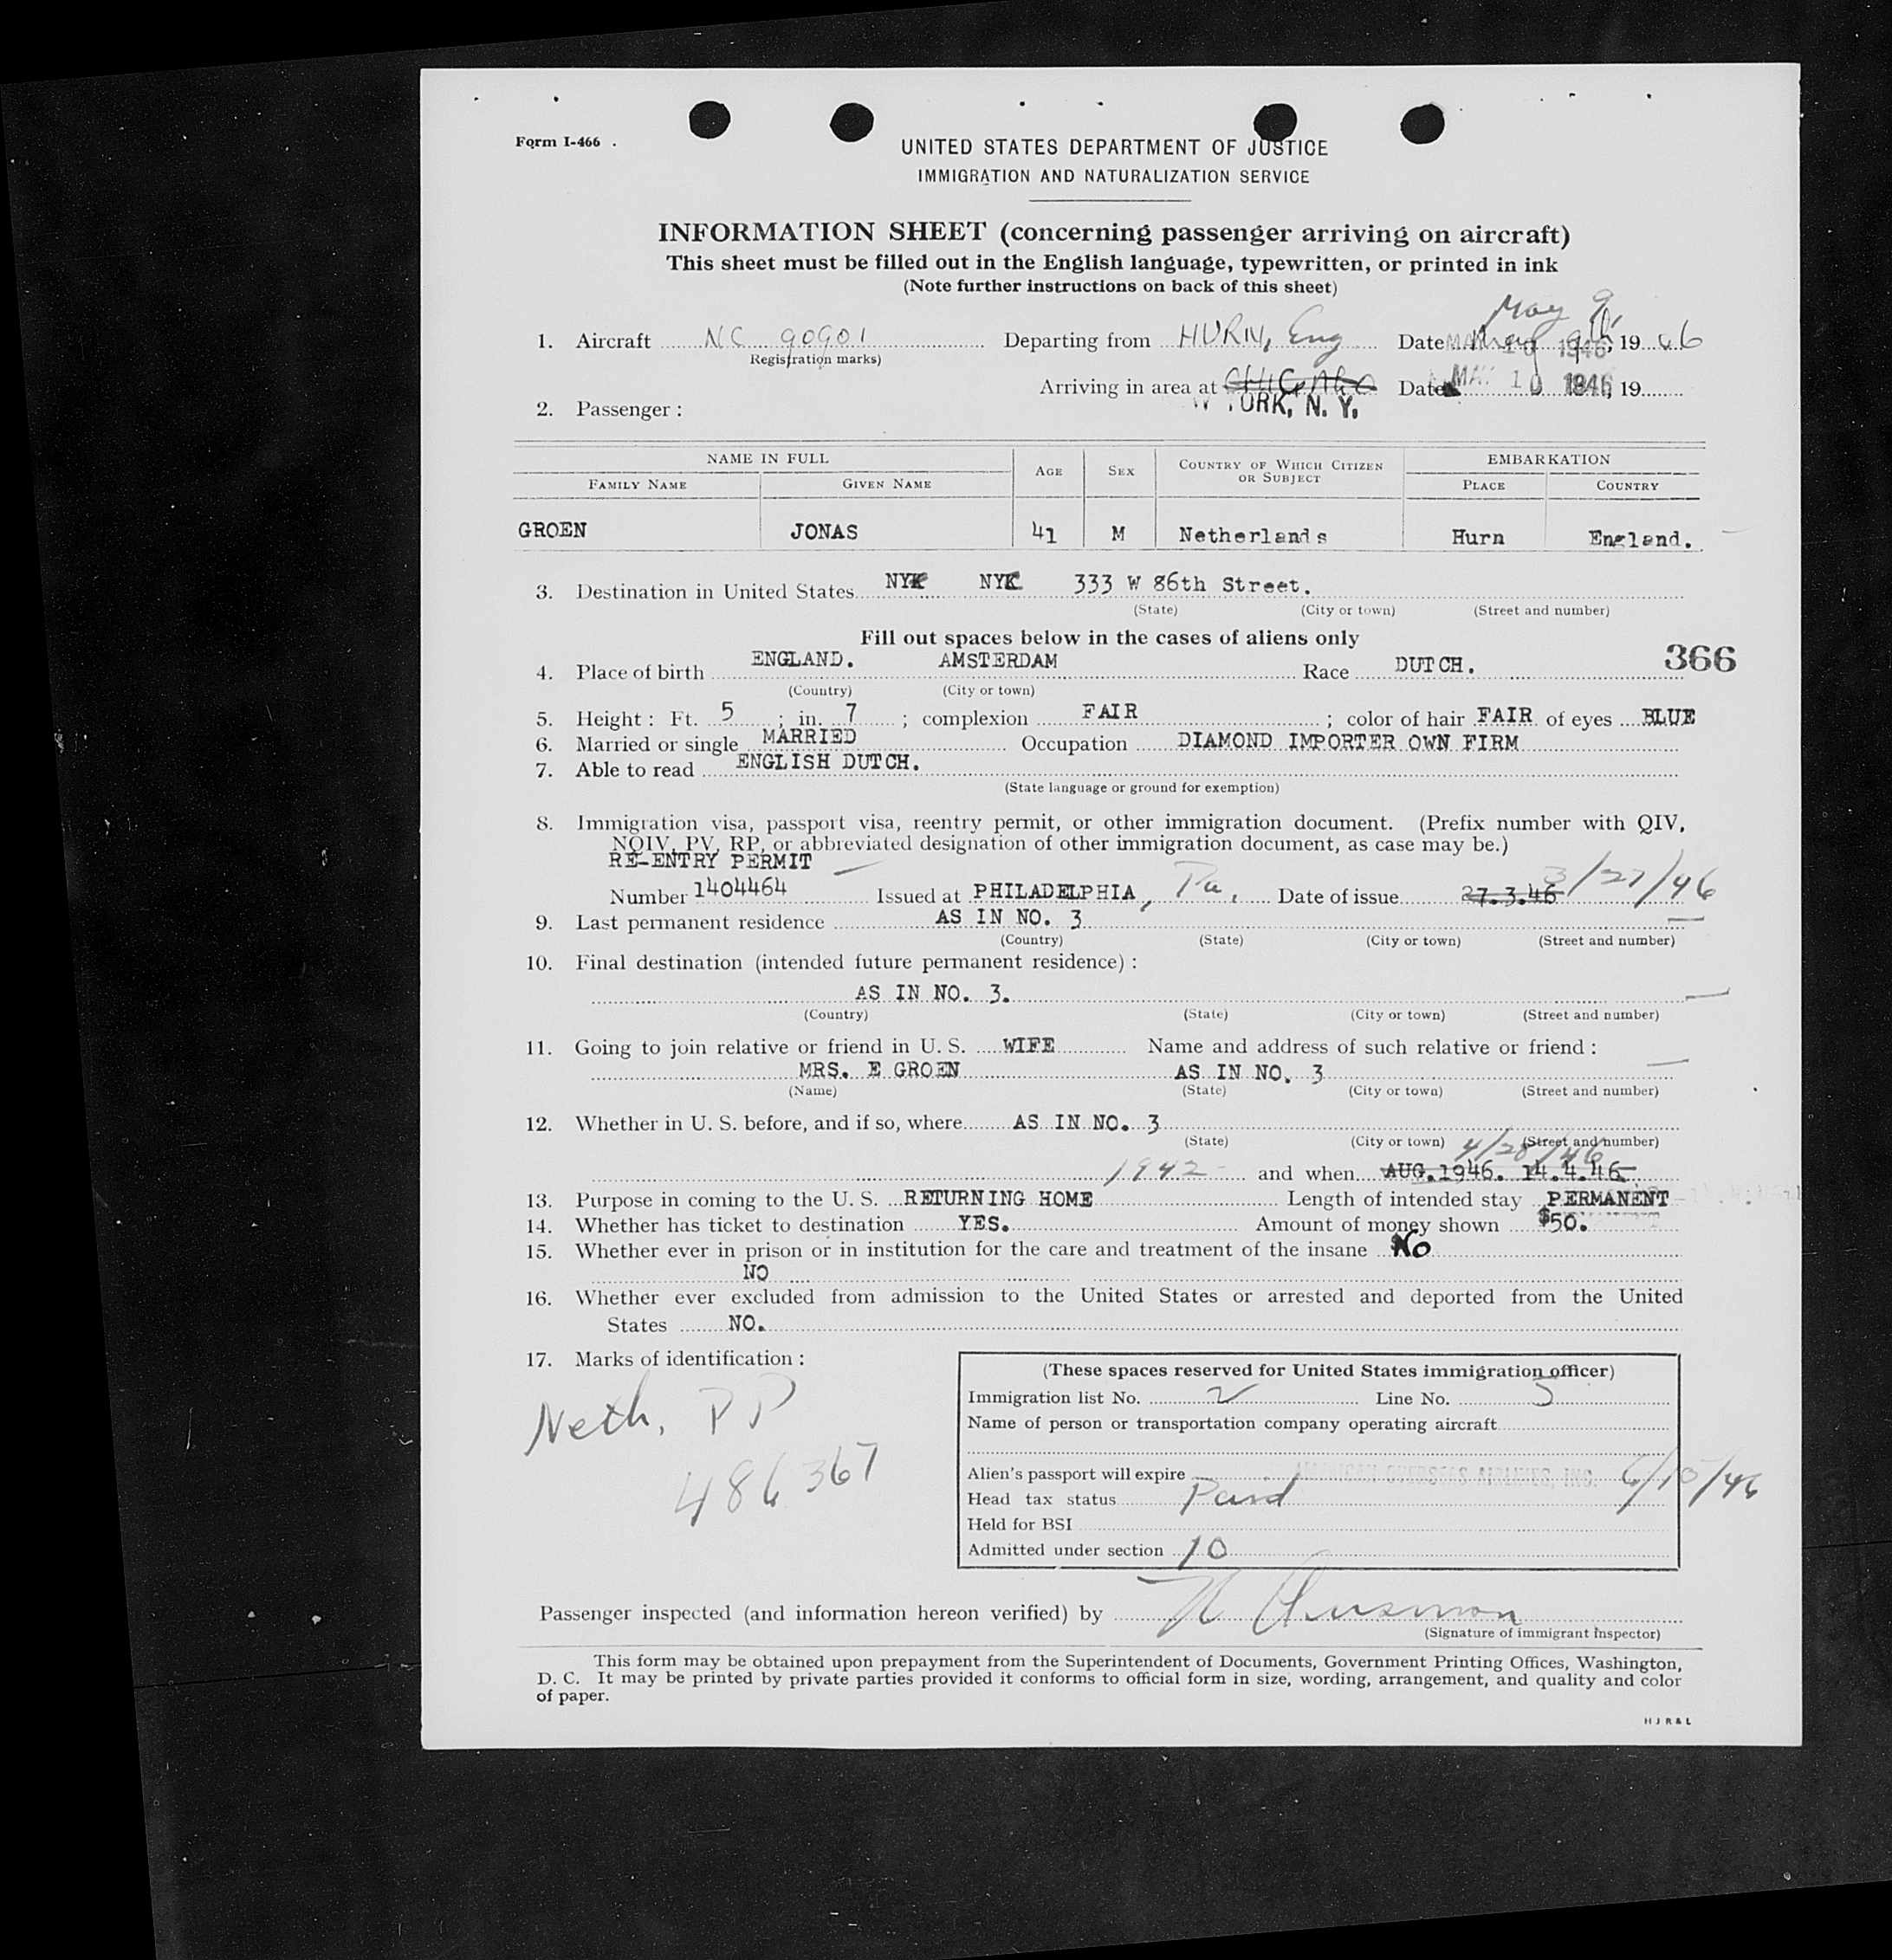 Form I-466
UNITED STATES DEPARTMENT OF JUSTICE
IMMIGRATION AND NATURALIZATION SERVICE
INFORMATION SHEET (concerning passenger arriving on aircraft)
This sheet must be filled out in the English language, typewritten, or printed in ink
(Note further instructions on back of this sheet)
May 9,
1. Aircraft NC 90901 Departing from HURN, Eng Date 1946, 19 46
(Registration marks)
Arriving in area at CHICAGO Date MAY 10 1946, 19
YORK, N. Y.
2. Passenger:
NAME IN FULL AGE SEX COUNTRY OF WHICH CITIZEN OR SUBJECT EMBARKATION
FAMILY NAME GIVEN NAME PLACE COUNTRY
GROEN JONAS 41 M Netherlands Hurn England.
3. Destination in United States NYK NYK 333 W 86th Street.
(State) (City or town) (Street and number)
Fill out spaces below in the cases of aliens only
366
4. Place of birth ENGLAND. AMSTERDAM Race DUTCH.
(Country) (City or town)
5. Height: Ft. 5; in. 7; complexion FAIR; color of hair FAIR of eyes BLUE
6. Married or single MARRIED Occupation DIAMOND IMPORTER OWN FIRM
7. Able to read ENGLISH DUTCH.
(State language or ground for exemption)
8. Immigration visa, passport visa, reentry permit, or other immigration document. (Prefix number with QIV,
NQIV, PV, RP, or abbreviated designation of other immigration document, as case may be.)
RE-ENTRY PERMIT
Number 1404464 Issued at PHILADELPHIA, Pa, Date of issue 27.3.46 3/27/46
9. Last permanent residence AS IN NO. 3
(Country) (State) (City or town) (Street and number)
10. Final destination (intended future permanent residence):
AS IN NO. 3.
(Country) (State) (City or town) (Street and number)
11. Going to join relative or friend in U. S. WIFE Name and address of such relative or friend:
MRS. E GROEN AS IN NO. 3
(Name) (State) (City or town) (Street and number)
12. Whether in U. S. before, and if so, where AS IN NO. 3
(State) (City or town) (Street and number)
4/28/46
1942 and when AUG.1946. 14.4.46
13. Purpose in coming to the U. S. RETURNING HOME Length of intended stay PERMANENT
14. Whether has ticket to destination YES. Amount of money shown $50.
15. Whether ever in prison or in institution for the care and treatment of the insane No
NO
16. Whether ever excluded from admission to the United States or arrested and deported from the United
States NO.
17. Marks of identification:
Neth. PP
486367
(These spaces reserved for United States immigration officer)
Immigration list No. 2 Line No. 5
Name of person or transportation company operating aircraft
AMERICAN OVERSEAS AIRLINES, INC.
Alien's passport will expire 6/15/46
Head tax status Paid
Held for BSI
Admitted under section 10
Passenger inspected (and information hereon verified) by
(Signature of immigrant inspector)
This form may be obtained upon prepayment from the Superintendent of Documents, Government Printing Offices, Washington,
D. C. It may be printed by private parties provided it conforms to official form in size, wording, arrangement, and quality and color
of paper.
H J R & L